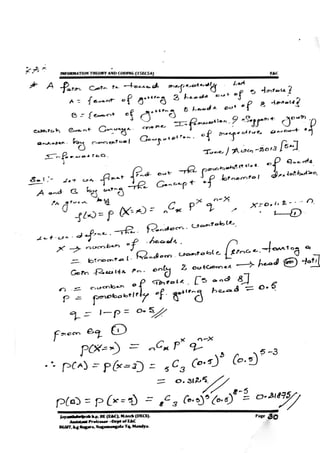 INFORMATION THEORY AND CODING (15EC54) E&C
* A fair coin is tossed repeatedly. Let
A = {event of getting 3 heads out of 5 trials}
B = {event of getting 5 heads out of 8 trials}
which event conveys more Information? Support your
answer by numerical computation of respective amount of
Information. June/ -2013 [6M]
Sol: Let us first find out the probabilities of events
A and B by using the concept of binomial distribution
is given by
f(x) = p(X=x) = nCx p^x q^n-x x=0,1,2---n.
Let us define. The Random variable
X → number of heads.
= binomial Random variable [since, tossing a
coin results in only 2 outcomes → head or tail]
n = number of trials [5 and 8]
p = probability of getting head = 0.5
q = 1-p = 0.5//
from eq ①
p(X=x) = nCx p^x q^n-x
∴ p(A) = p(x=3) = 5C3 (0.5)^3 (0.5)^5-3
= 0.3125//
p(B) = p(x=5) = 8C5 (0.5)^5 (0.5)^8-5 = 0.21875//
BE (E&C), M.tech (DECS).
Assistant Professor -Dept of E&C
BGSIT, B.g Nagara, Nagamangala Tq, Mandya.
Page 30